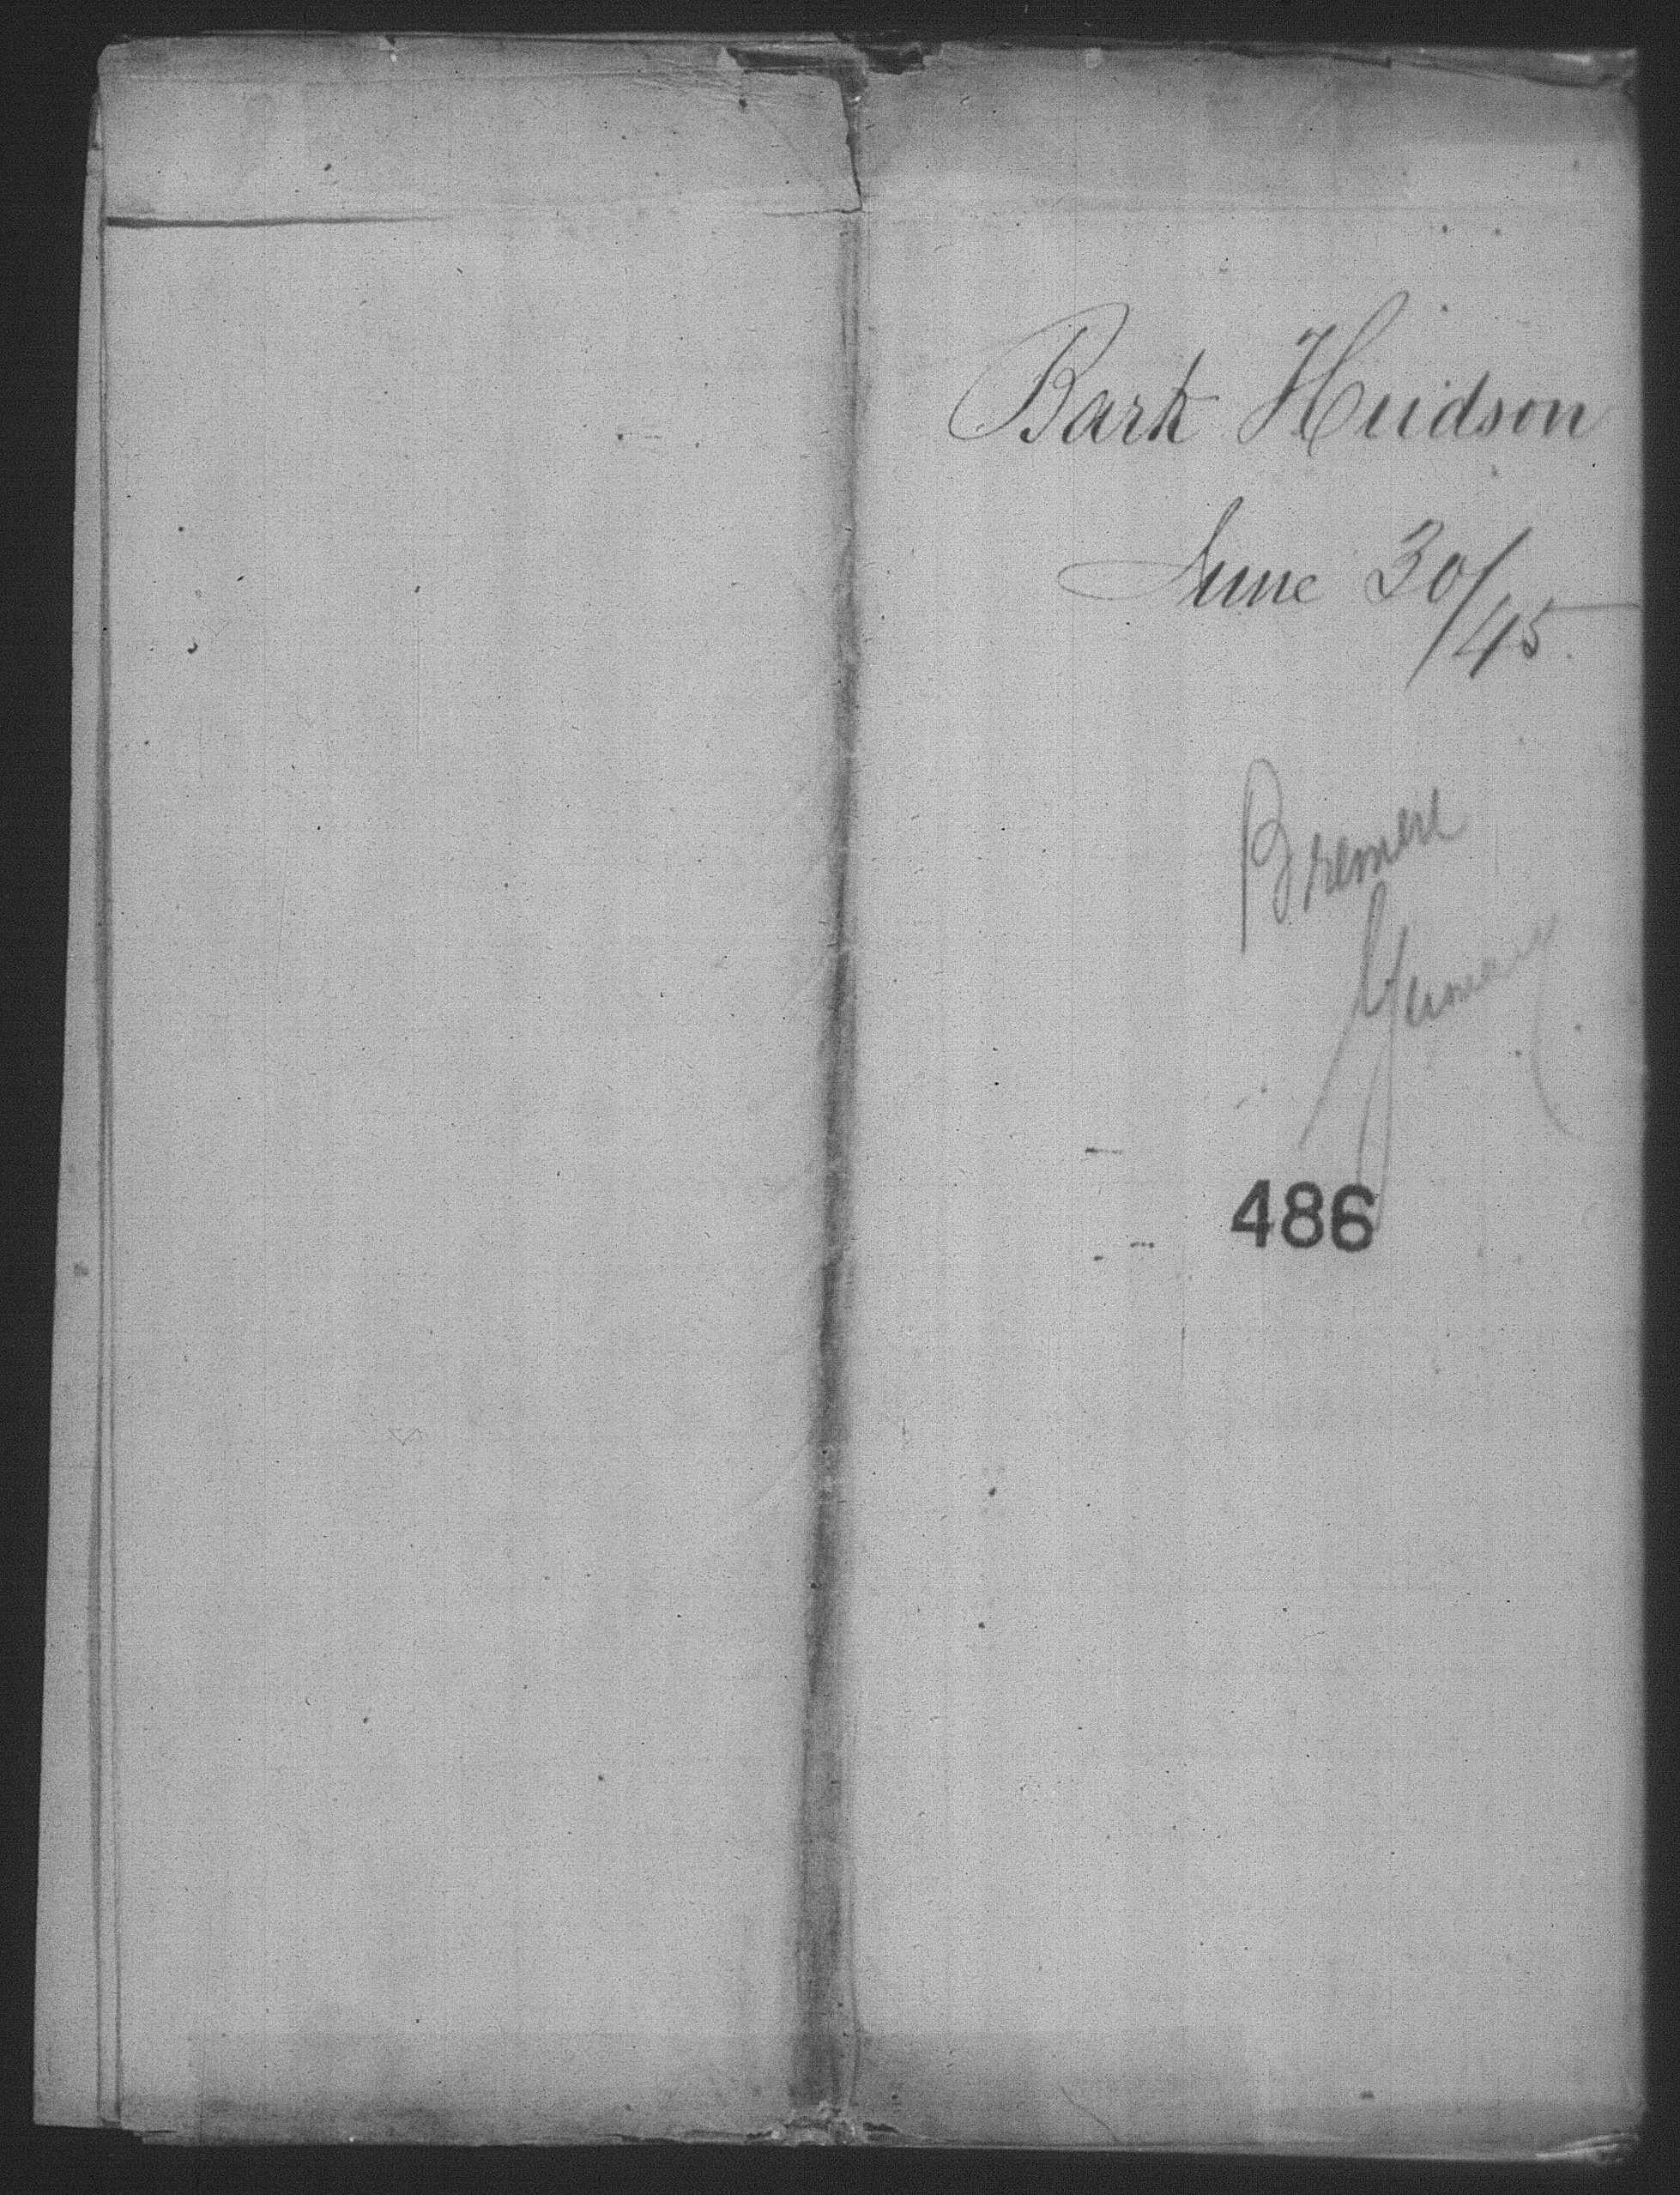 Bark Hudson
June 30/45
Bremen
Germany
486